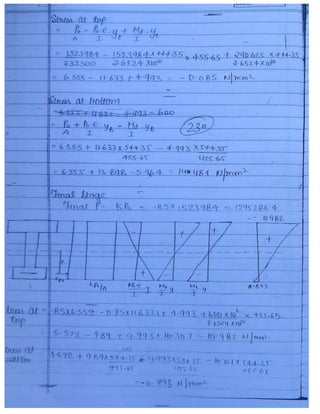 Stress at top
= Po/A - Po e/I yt + Md/I yt
= 1523984/232500 - 1523984 × 544.35/2.6524 × 10^10 × 455.65 + 290.615 × 
2.6524 × 10^10
= 6.555 - 11.633 + 4.993 = -0.085 N/mm²
Stress at bottom
= Po/A + Po e/I yB - Md/I yB
230
= 6.555 + 11.633 × 544.35/455.65 - 4.993 × 544.35/455.65
= 6.555 + 13.898 - 5.964 = N/mm²
Final Stage
Final P = KPo = .85 × 1523984 = 1295386.4
10.982
KPo/A
0.893
Stress at top = .85 × 6.555 - 0.85 × 11.633 + 4.993 + 600 × 10^6/2.6524 × 10^10 × 455.65
= 5.572 - 9.89 + 4.993 + 10.307 = 10.982 N/mm²
Stress at bottom = 5.572 + 9.89 × 544.35/455.65 - 4.993 × 544.35/455.65 - 10.307 × 544.35/455.65
= -0.893 N/mm²